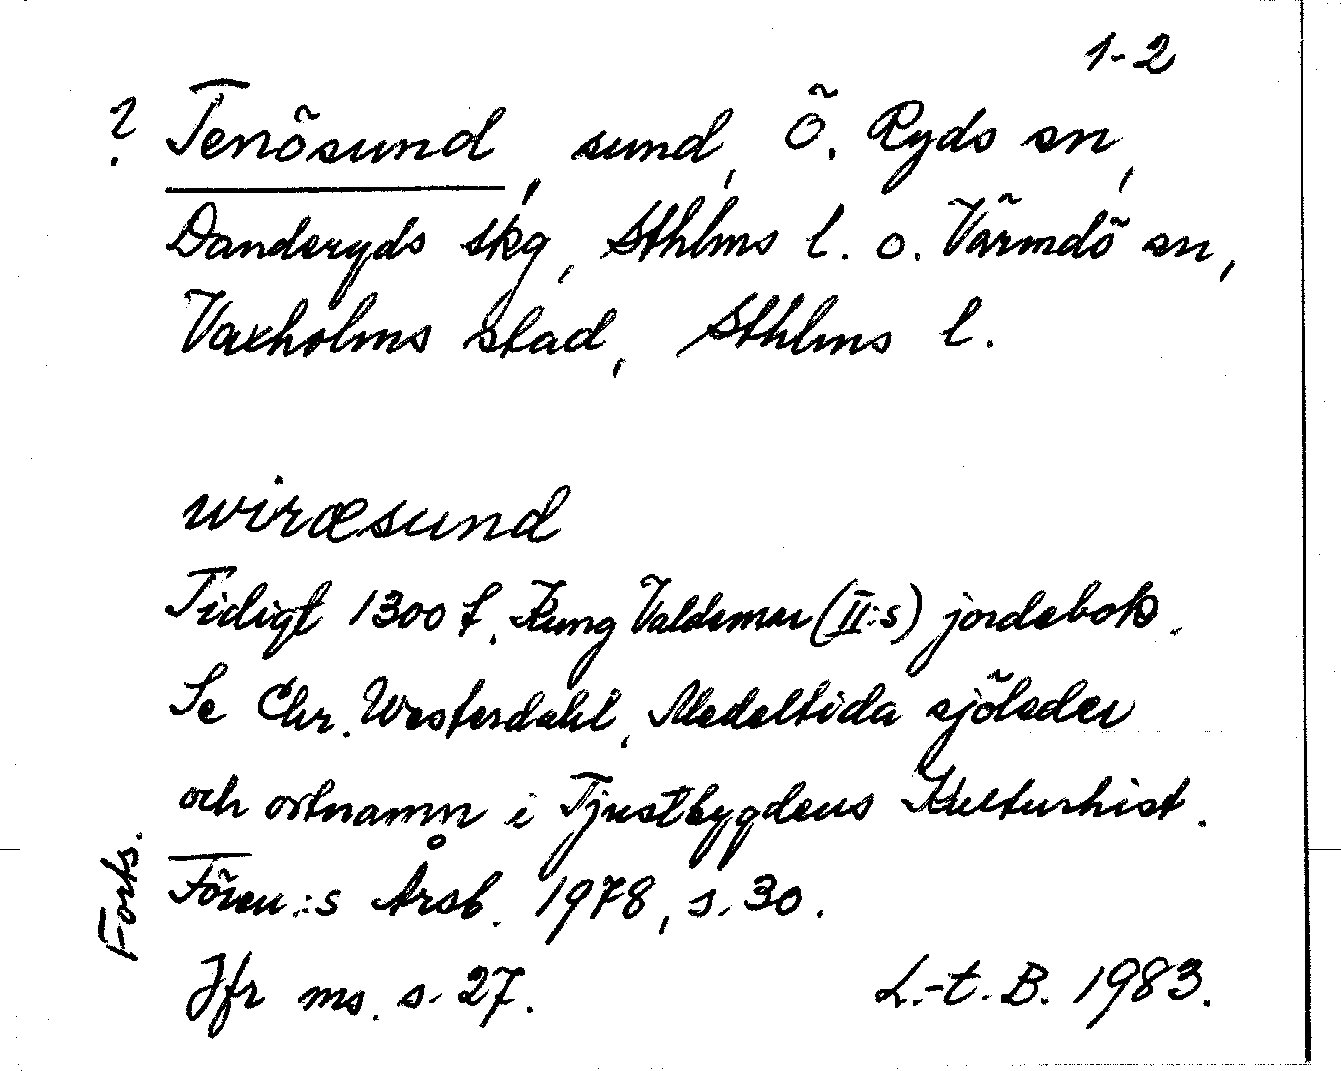 1-2
? Tenösund, sund, Ö. Ryds sn,
Danderyds skg, Sthlms l. o. Värmdö sn,
Vaxholms stad, Sthlms l.
wiræsund
Tidigt 1300 t. Kung Valdemar (II:s) jordebok.
Se Chr. Westerdahl, Medeltida sjöleder
och ortnamn i Tjustbygdens Kulturhist.
Fören:s Årsb. 1978, s. 30.
Jfr ms. s. 27. L.-t. B. 1983.
Forts.